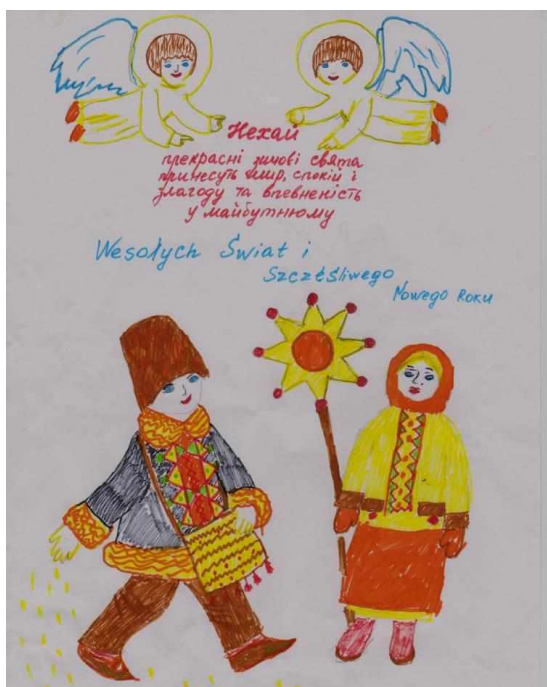 Нехай
прекрасні зимові свята
принесуть мир, спокій і
злагоду та впевненість
у майбутньому
Wesołych Świat i
Szczęśliwego
Nowego Roku